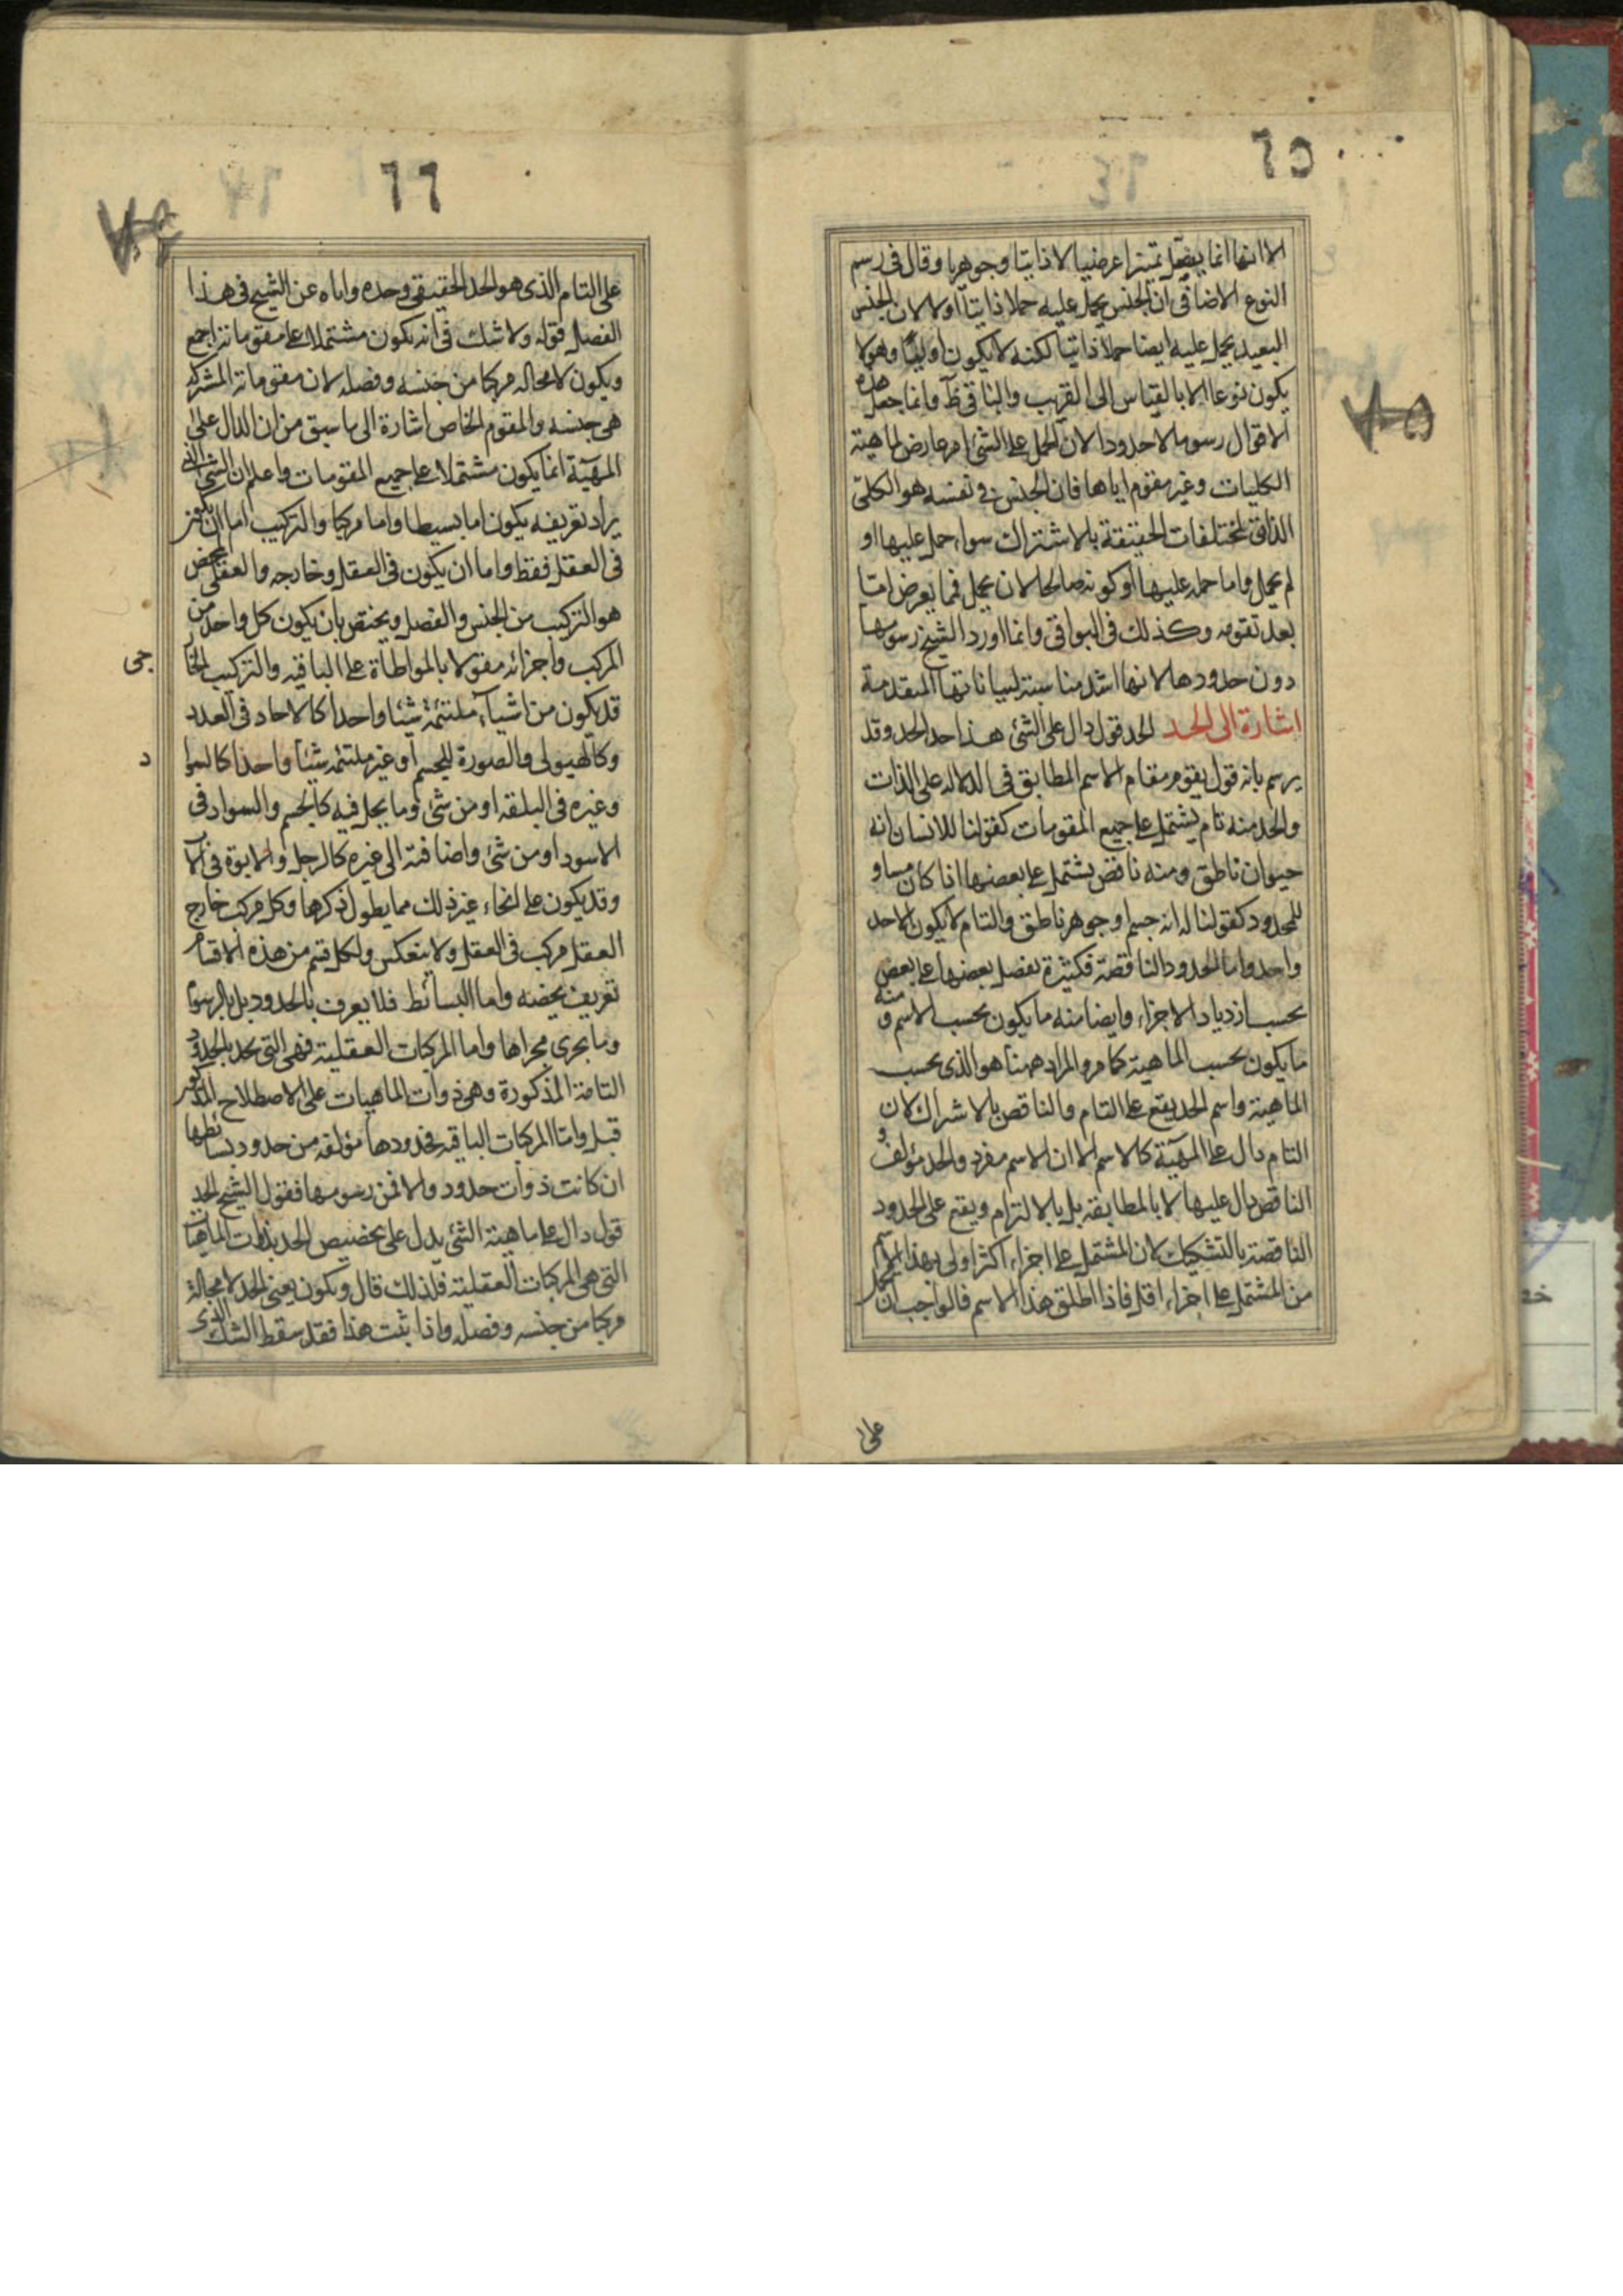 ٦٥
الا انها انما يفعل تميزا عرضيا لا ذاتيا وجوهريا وقال فى رسم
النوع الاضافى ان الجنس يحمل عليه حملا ذاتيا اولا لان الجنس
البعيد يحمل عليه ايضا حملا ذاتيا لكنه لا يكون اوليا وهو لا
يكون نوعا الا بالقياس الى القريب والباقى ظ وانما جعل هذه
الاقوال رسوما لا حدودا لان الحمل على الشئ امر عارض لماهية
الكليات وغير مقوم اياها فان الجنس فى نفسه هو الكلى
الذاتى لمختلفات الحقيقة بالاشتراك سواء حمل عليها او
لم يحمل واما حمله عليها او كونه صالحا لان يحمل فمما يعرض
بعد تقومه وكذلك فى البواقى وانما اورد الشيخ رسومها
دون حدودها لانها اشد مناسبة لبياناتها المتقدمة
اشارة الى الحد الحد قول دال على الشئ هذا حد الحد وقد
يرسم بانه قول يقوم مقام الاسم المطابق فى الدلاله على الذات
والحد منه تام يشتمل على جميع المقومات كقولنا للانسان انه
حيوان ناطق ومنه ناقص يشتمل على بعضها اذا كان مساو
للمحدود كقولنا له انه جسم او جوهر ناطق والتام لا يكون الاحد
واحد واما الحدود الناقصة فكثيرة يفضل بعضها على بعض
بحسب ازدياد الاجزاء وايضا منه ما يكون بحسب الاسم و منه
ما يكون بحسب الماهية كما مر والمراد ههنا هو الذى بحسب
الماهية واسم الحد يقع على التام والناقص بالاشراك لان
التام دال على المهية كالاسم الا ان الاسم مفرد والحد مؤلف و
الناقص دال عليها لا بالمطابقه بل بالالتزام ويقع على الحدود
الناقصة بالتشكيك لان المشتمل على اجزاء اكثر اولى بهذا الاسم
من المشتمل على اجزاء اقل فاذا اطلق هذا الاسم فالواجب ان
على
٦٦
على التام الذى هو الحد الحقيقى وحده واياه عن الشيخ فى هذا
الفصل قوله ولا شك فى انه يكون مشتملا على مقوماته اجمع
ويكون لا محاله مركبا من جنسه وفصله لان مقوماته المشتركه
هى جنسه والمقوم الخاص اشارة الى ما سبق من ان الدال على
المهية انما يكون مشتملا على جميع المقومات واعلم ان الشئ الذى
يراد تعريفه يكون اما بسيطا واما مركبا والتركيب اما ان يكون
فى العقل فقط واما ان يكون فى العقل وخارجه والعقلى المحض
هو التركيب من الجنس والفصل ويختص بان يكون كل واحد من
المركب واجزائه مقولا بالمواطاة على الباقيه والتركيب الخا
جى
قد يكون من اشياء ملتئمة شيئا واحدا كالاحاد فى العدد
وكالهيولى والصورة للجسم او غير ملتئمه شيئا واحدا كالسوا
د
وغيره فى البلقه او من شئ وما يحل فيه كالجسم والسواد فى
الاسود او من شئ واضافته الى غيره كالرجل والابوة فى الا
وقد يكون على انحاء غير ذلك مما يطول ذكرها وكل مركب خارج
العقل مركب فى العقل ولا ينعكس ولكل قسم من هذه الاقسام
تعريف يخصه واما البسائط فلا يعرف بالحدود بل بالرسوم
وما يجرى مجراها واما المركبات العقلية فهى التى تحد بالحدود
التامة المذكورة وهى ذوات الماهيات على الاصطلاح المذكور
قبل واما المركبات الباقيه فحدودها مؤلفه من حدود بسائطها
ان كانت ذوات حدود والا فمن رسومها فقول الشيخ الحد
قول دال على ماهية الشئ يدل على تخصيص الحد بذوات الماهيات
التى هى المركبات العقلية فلذلك قال ويكون يعنى الحد لا محالة
مركبا من جنسه وفصله واذا ثبت هذا فقد سقط الشك الذى